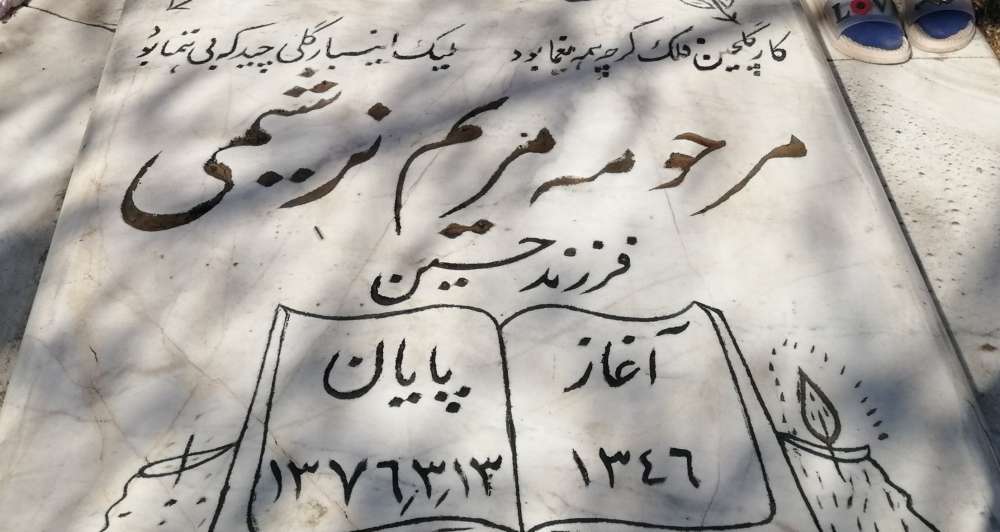 کار گلچین فلک گرچه همه یغما بود لیک اینبار گلی چید که بی همتا بود
مرحومه مریم نرشیمی
فرزند حسین
آغاز
۱۳٤٦
پایان
۱۳۷٦٫۳٫۱۳
LOV